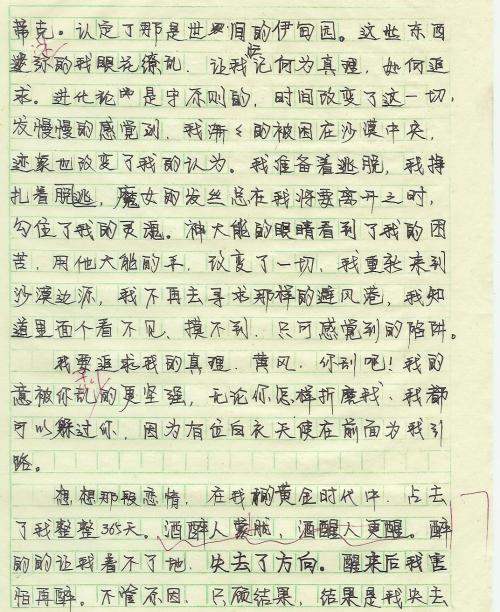 蒂克。认定了那是世界上的伊甸园。这些东西
缭的我眼花缭乱，让我忘记何为真理，如何追
求。进化论中是守不则的，时间改变了这一切，
发慢慢的感觉到，我渐々的被困在沙漠中央，
迹象也改变了我的认为。我准备着逃脱，我挣
扎着脱逃，魔女的发丝总在我将要离开之时，
勾住了我的灵魂。神大能的眼睛看到了我的困
苦，用他大能的手，改变了一切，我重新来到
沙漠边源，我不再去寻求那样的避风港，我知
道里面个看不见、摸不到，只可感觉到的陷阱。
我要追求我的真理，黄风，你刮吧！我的
意被你乱的更坚强，无论你怎样折磨我、我都
可以躲过你，因为有位白衣天使在前面为我引
路。
想想那段恋情，在我的黄金时代中，占去
了我整整365天。酒醉人蒙胧，酒醒人更醒。醉
的的让我看不了地，失去了方向。醒来后我害
怕再醉。不管原因，只顾结果，结果是我失去